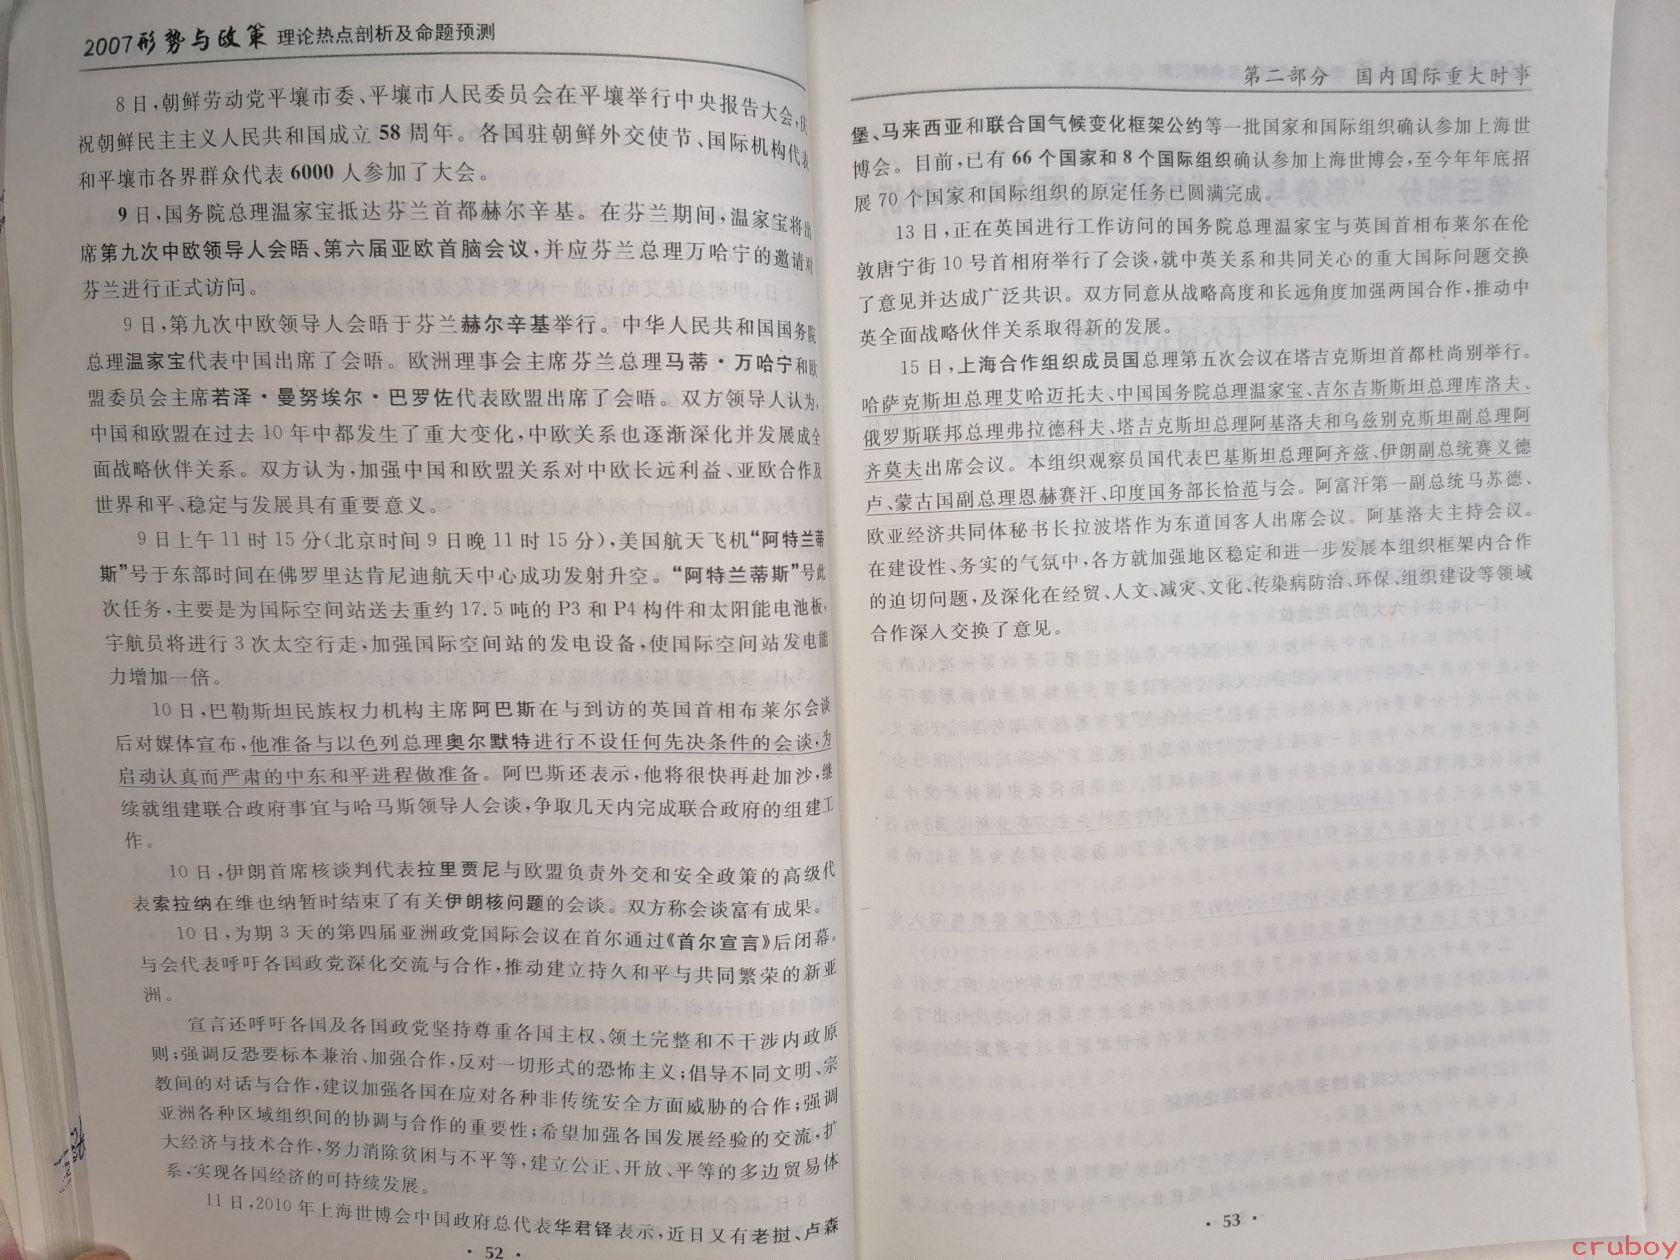 2007形势与政策 理论热点剖析及命题预测
8日,朝鲜劳动党平壤市委、平壤市人民委员会在平壤举行中央报告大会,庆
祝朝鲜民主主义人民共和国成立58周年。各国驻朝鲜外交使节、国际机构代表
和平壤市各界群众代表6000人参加了大会。
9日,国务院总理温家宝抵达芬兰首都赫尔辛基。在芬兰期间,温家宝将出
席第九次中欧领导人会晤、第六届亚欧首脑会议,并应芬兰总理万哈宁的邀请对
芬兰进行正式访问。
9日,第九次中欧领导人会晤于芬兰赫尔辛基举行。中华人民共和国国务院
总理温家宝代表中国出席了会晤。欧洲理事会主席芬兰总理马蒂·万哈宁和欧
盟委员会主席若泽·曼努埃尔·巴罗佐代表欧盟出席了会晤。双方领导人认为,
中国和欧盟在过去10年中都发生了重大变化,中欧关系也逐渐深化并发展成全
面战略伙伴关系。双方认为,加强中国和欧盟关系对中欧长远利益、亚欧合作及
世界和平、稳定与发展具有重要意义。
9日上午11时15分(北京时间9日晚11时15分),美国航天飞机“阿特兰蒂
斯”号于东部时间在佛罗里达肯尼迪航天中心成功发射升空。“阿特兰蒂斯”号此
次任务,主要是为国际空间站送去重约17.5吨的P3和P4构件和太阳能电池板,
宇航员将进行3次太空行走,加强国际空间站的发电设备,使国际空间站发电能
力增加一倍。
10日,巴勒斯坦民族权力机构主席阿巴斯在与到访的英国首相布莱尔会谈
后对媒体宣布,他准备与以色列总理奥尔默特进行不设任何先决条件的会谈,为
启动认真而严肃的中东和平进程做准备。阿巴斯还表示,他将很快再赴加沙,继
续就组建联合政府事宜与哈马斯领导人会谈,争取几天内完成联合政府的组建工
作。
10日,伊朗首席核谈判代表拉里贾尼与欧盟负责外交和安全政策的高级代
表索拉纳在维也纳暂时结束了有关伊朗核问题的会谈。双方称会谈富有成果。
10日,为期3天的第四届亚洲政党国际会议在首尔通过《首尔宣言》后闭幕。
与会代表呼吁各国政党深化交流与合作,推动建立持久和平与共同繁荣的新亚
洲。
宣言还呼吁各国及各国政党坚持尊重各国主权、领土完整和不干涉内政原
则;强调反恐要标本兼治、加强合作,反对一切形式的恐怖主义;倡导不同文明、宗
教间的对话与合作,建议加强各国在应对各种非传统安全方面威胁的合作;强调
亚洲各种区域组织间的协调与合作的重要性;希望加强各国发展经验的交流,扩
大经济与技术合作,努力消除贫困与不平等,建立公正、开放、平等的多边贸易体
系,实现各国经济的可持续发展。
11日,2010年上海世博会中国政府总代表华君铎表示,近日又有老挝、卢森
·52·
第二部分 国内国际重大时事
堡、马来西亚和联合国气候变化框架公约等一批国家和国际组织确认参加上海世
博会。目前,已有66个国家和8个国际组织确认参加上海世博会,至今年年底招
展70个国家和国际组织的原定任务已圆满完成。
13日,正在英国进行工作访问的国务院总理温家宝与英国首相布莱尔在伦
敦唐宁街10号首相府举行了会谈,就中英关系和共同关心的重大国际问题交换
了意见并达成广泛共识。双方同意从战略高度和长远角度加强两国合作,推动中
英全面战略伙伴关系取得新的发展。
15日,上海合作组织成员国总理第五次会议在塔吉克斯坦首都杜尚别举行。
哈萨克斯坦总理艾哈迈托夫、中国国务院总理温家宝、吉尔吉斯斯坦总理库洛夫、
俄罗斯联邦总理弗拉德科夫、塔吉克斯坦总理阿基洛夫和乌兹别克斯坦副总理阿
齐莫夫出席会议。本组织观察员国代表巴基斯坦总理阿齐兹、伊朗副总统赛义德
卢、蒙古国副总理恩赫赛汗、印度国务部长恰范与会。阿富汗第一副总统马苏德、
欧亚经济共同体秘书长拉波塔作为东道国客人出席会议。阿基洛夫主持会议。
在建设性、务实的气氛中,各方就加强地区稳定和进一步发展本组织框架内合作
的迫切问题,及深化在经贸、人文、减灾、文化、传染病防治、环保、组织建设等领域
合作深入交换了意见。
·53·
cruboy